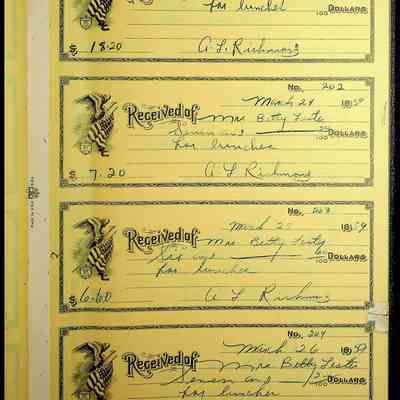 for lunches
100 DOLLARS
$ 18.20 A. L. Richmond
No. 202
March 24 1959
Received of Mrs Betty Leste
Seven and 20/100 DOLLARS
for lunches
$ 7.20 A L Richmond
No. 203
March 25 1959
Received of Mrs. Betty Leste
Six and 60/100 DOLLARS
for lunches
$ 6.60 A L Richmond
No. 204
March 26 1959
Received of Mrs Betty Leste
Seven and /100 DOLLARS
for lunches